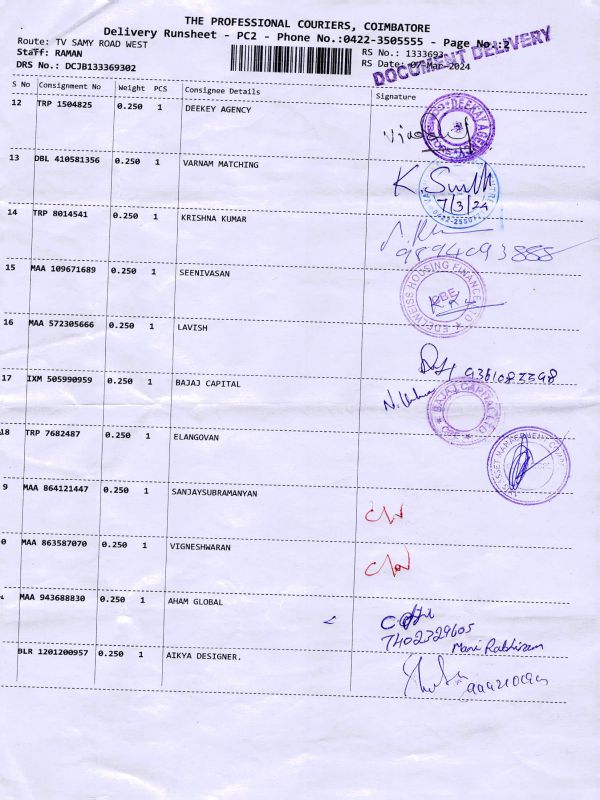 THE PROFESSIONAL COURIERS, COIMBATORE
Delivery Runsheet - PC2 - Phone No.:0422-3505555 - Page No.:2
Route: TV SAMY ROAD WEST
Staff: RAMAN
DRS No.: DCJB133369302
RS No.: 1333693
RS Date: 07-Mar-2024
DOCUMENT DELIVERY
S No Consignment No Weight PCS Consignee Details Signature
12 TRP 1504825 0.250 1 DEEKEY AGENCY
13 DBL 410581356 0.250 1 VARNAM MATCHING
K. Smith
7/3/24
14 TRP 8014541 0.250 1 KRISHNA KUMAR
9894093888
15 MAA 109671689 0.250 1 SEENIVASAN
EDELWEISS HOUSING FINANCE LTD
CBE
16 MAA 572305666 0.250 1 LAVISH
9361082298
17 IXM 505990959 0.250 1 BAJAJ CAPITAL
BAJAJ CAPITAL LTD
18 TRP 7682487 0.250 1 ELANGOVAN
ASSET MANAGEMENT
9 MAA 864121447 0.250 1 SANJAYSUBRAMANYAN
0 MAA 863587070 0.250 1 VIGNESHWARAN
MAA 943688830 0.250 1 AHAM GLOBAL
7402329605
Mani
BLR 1201200957 0.250 1 AIKYA DESIGNER.